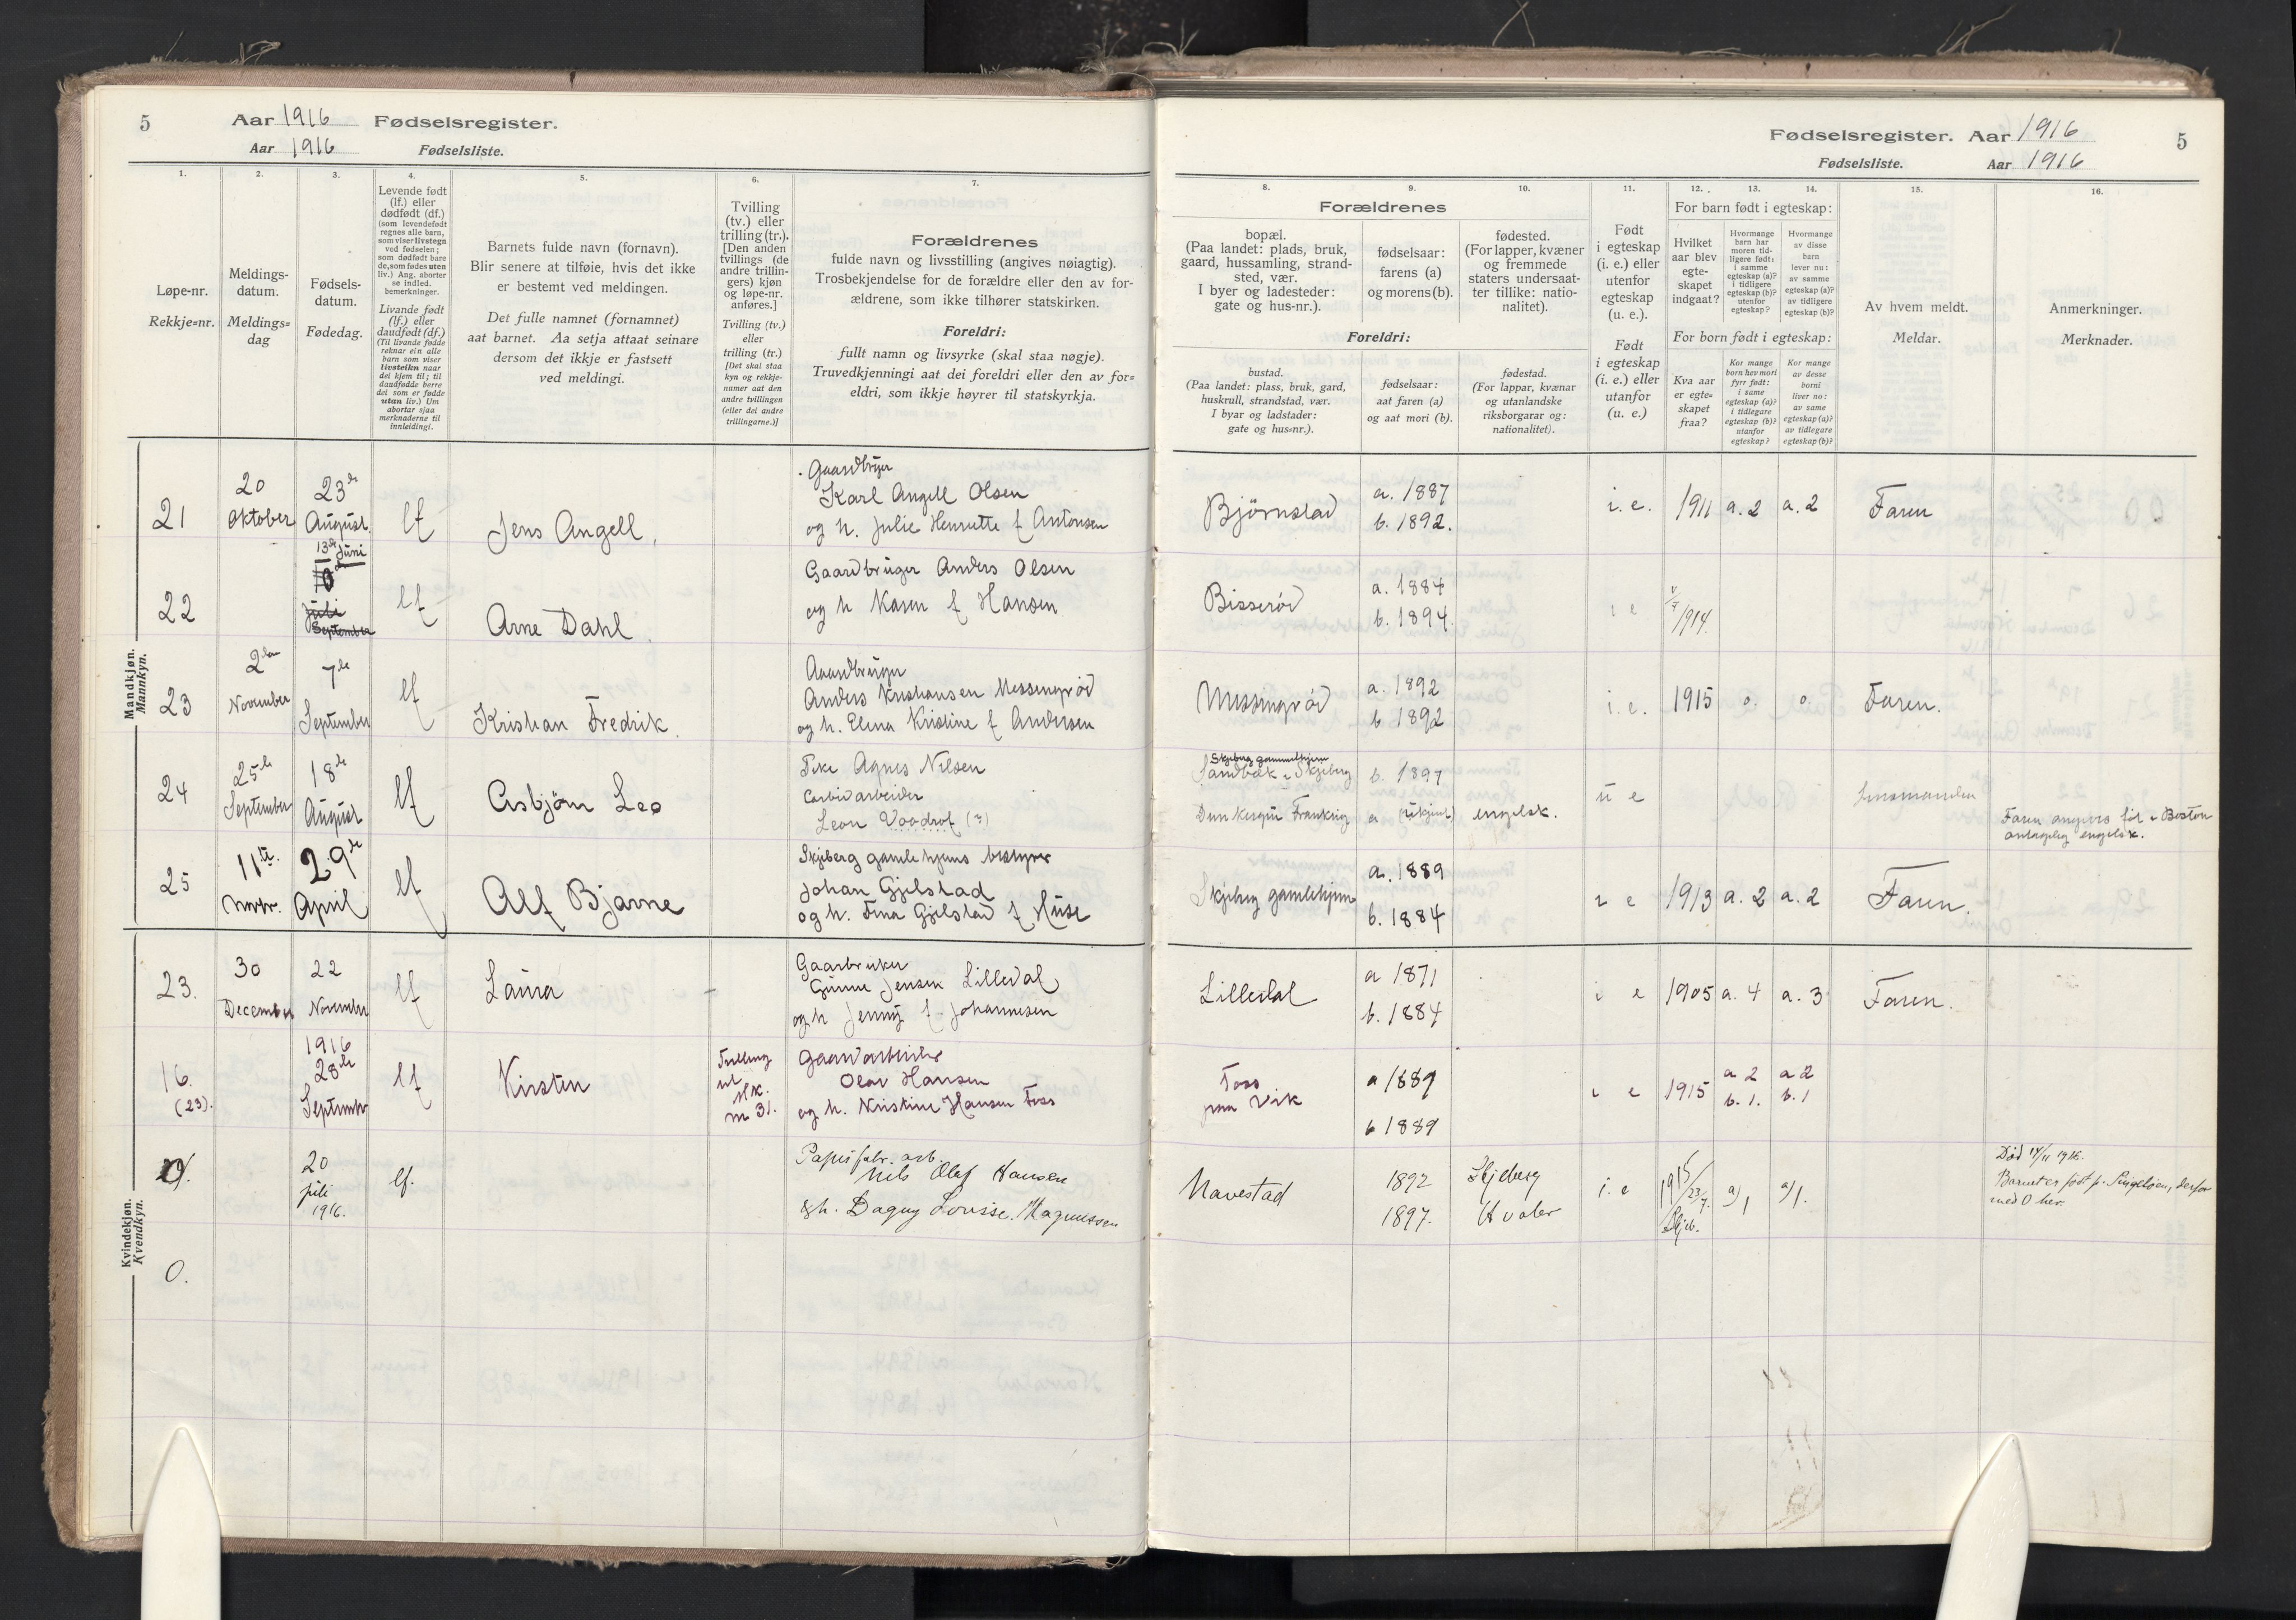 5
Aar 1916 Fødselsregister.
Aar 1916 Fødselsliste.
1.
2.
3.
4.
5.
6.
7.
Løpe-nr.
Rekkje=nr.
Meldings-
datum.
Meldings=
dag
Fødsels-
datum.
Fødedag.
Levende født
(lf.) eller
dødfødt (df.)
(som levendefødt
regnes alle barn,
som viser livstegn
ved fødselen;
som dødfødt bare
de, som fødes uten
liv.) Ang. aborter
se indled.
bemerkninger.
Livande født
(lf.) eller
daudfødt (df.)
(Til livande fødde
reknar ein alle
barn som viser
livsteikn naar
dei kjem til; til
daudfødde berre
dei som er fødde
utan liv.) Um
abortar sjaa
merknaderne til
innleidingi.
Barnets fulde navn (fornavn).
Blir senere at tilføie, hvis det ikke
er bestemt ved meldingen.
Det fulle namnet (fornamnet)
aat barnet. Aa setja attaat seinare
dersom det ikkje er fastsett
ved meldingi.
Tvilling
(tv.) eller
trilling (tr.).
[Den anden
tvillings (de
andre trillin-
gers) kjøn
og løpe-nr.
anføres.]
Tvilling (tv.)
eller
trilling (tr.)
[Det skal staa
kyn og rekkje-
numer aat den
andre tvillingen
(eller dei andre
trillingarne.)]
Forældrenes
fulde navn og livsstilling (angives nøiagtig).
Trosbekjendelse for de forældre eller den av for-
ældrene, som ikke tilhører statskirken.
Foreldri:
fullt namn og livsyrke (skal staa nøgje).
Truvedkjenningi aat dei foreldri eller den av for=
eldri, som ikkje høyrer til statskyrkja.
Mandkjøn.
Mannkyn.
21
20
Oktober
23de
August
lf
Jens Angell.
Gaardbruger
Karl Angell Olsen
og h. Julie Henriette f Antonsen
22
13de Juni
10
Juli
September
lf
Arne Dahl.
Gaardbruger Anders Olsen
og h Karen f Hansen
23
2den
November
7de
September
lf
Kristian Fredrik.
Gaardbruger
Anders Kristiansen Messingrød
og h. Elena Kristine f Andersen
24
25de
September
18de
August
lf
Asbjørn Leo
Pike Agnes Nilsen
Carbidarbeider
Leon Voodrof (?)
25
11te
Novbr.
29de
April
lf
Alf Bjarne
Skjeberg gamlehjems bestyrer
Johan Gjelstad
og h. Tina Gjelstad f Huse
Kvindekjøn.
Kvendkyn.
23.
30
December
22
November
lf
Laura
Gaarbruker
Gunne Jensen Lilledal
og h Jenny f. Johannesen
16.
(23).
1916
28de
September
lf
Kirsten
Tvilling
til
Mk.
nr 31.
Gaardarbeider
Olav Hansen
og h. Kristine Hansen Foss
20
juli
1916.
lf.
Papirfabr. arb.
Nils Olaf Hansen
&h. Dagny Lovisse. Magnussen
0.
Fødselsregister. Aar 1916
5
Fødselsliste. Aar 1916
8.
9.
10.
11.
12.
13.
14.
15.
16.
Forældrenes
bopæl.
(Paa landet: plads, bruk,
gaard, hussamling, strand-
sted, vær.
I byer og ladesteder:
gate og hus-nr.).
fødselsaar:
farens (a)
og morens (b).
fødested.
(For lapper, kvæner
og fremmede
staters undersaat-
ter tillike: natio-
nalitet).
Foreldri:
bustad.
(Paa landet: plass, bruk, gard,
huskrull, strandstad, vær.
I byar og ladstader:
gate og hus=nr.).
fødselsaar:
aat faren (a)
og aat mori (b).
fødestad.
(For lappar, kvænar
og utanlandske
riksborgarar og:
nationalitet).
Født
i egteskap
(i. e.) eller
utenfor
egteskap
(u. e.).
Født
i egteskap
(i. e.) eller
utanfor
(u. e.)
For barn født i egteskap:
Hvilket
aar blev
egte-
skapet
indgaat?
Hvormange
barn har
moren tid-
ligere født:
i samme
egteskap (a)?
i tidligere
egteskap (b)?
utenfor
egteskap?
Hvormange
av disse
barn
lever nu:
av samme
egteskap (a)?
av tidligere
egteskap (b)?
For born født i egteskap:
Kva aar
er egte=
skapet
fraa?
Kor mange
born hev mori
fyrr født:
i same
egteskap (a)?
i tidlegare
egteskap (b)?
utanfor
egteskap?
Kor mange
av desse
borni
liver no:
av same
egteskap (a)?
av tidlegare
egteskap (b)?
Av hvem meldt.
Meldar.
Anmerkninger.
Merknader.
Bjørnstad
a. 1887
b. 1892.
i. e.
1911
a. 2
a. 2
Faren
Bisserød
a. 1884
b. 1894.
i e
1914.
Messingrød
a. 1892
b 1892
i. e.
1915
0.
0.
Faren.
Skjeberg gammelhjem
Sandbæk i Skjeberg
b. 1897
Dunkerque Frankrig
a (ukjent)
engelsk.
u e
lensmanden
Faren angives født i Boston
antagelig engelsk.
Skjeberg gamlehjem
a. 1889
b. 1884
i e
1913
a. 2
a. 2
Faren.
Lilledal
a 1871
b. 1884
i e
1905
a. 4
a. 3
Faren.
Foss
paa Vik
a 1889
b 1889
i e
1915
a 2
b. 1.
a 2
b. 1
Navestad
1892
1897.
Skjeberg
Hvaler
i. e
1915
23/7.
Skjeb.
a/1
a/1.
Død 14/11 1916.
Barnet er født p. Singeløen, derfor
med 0 her.